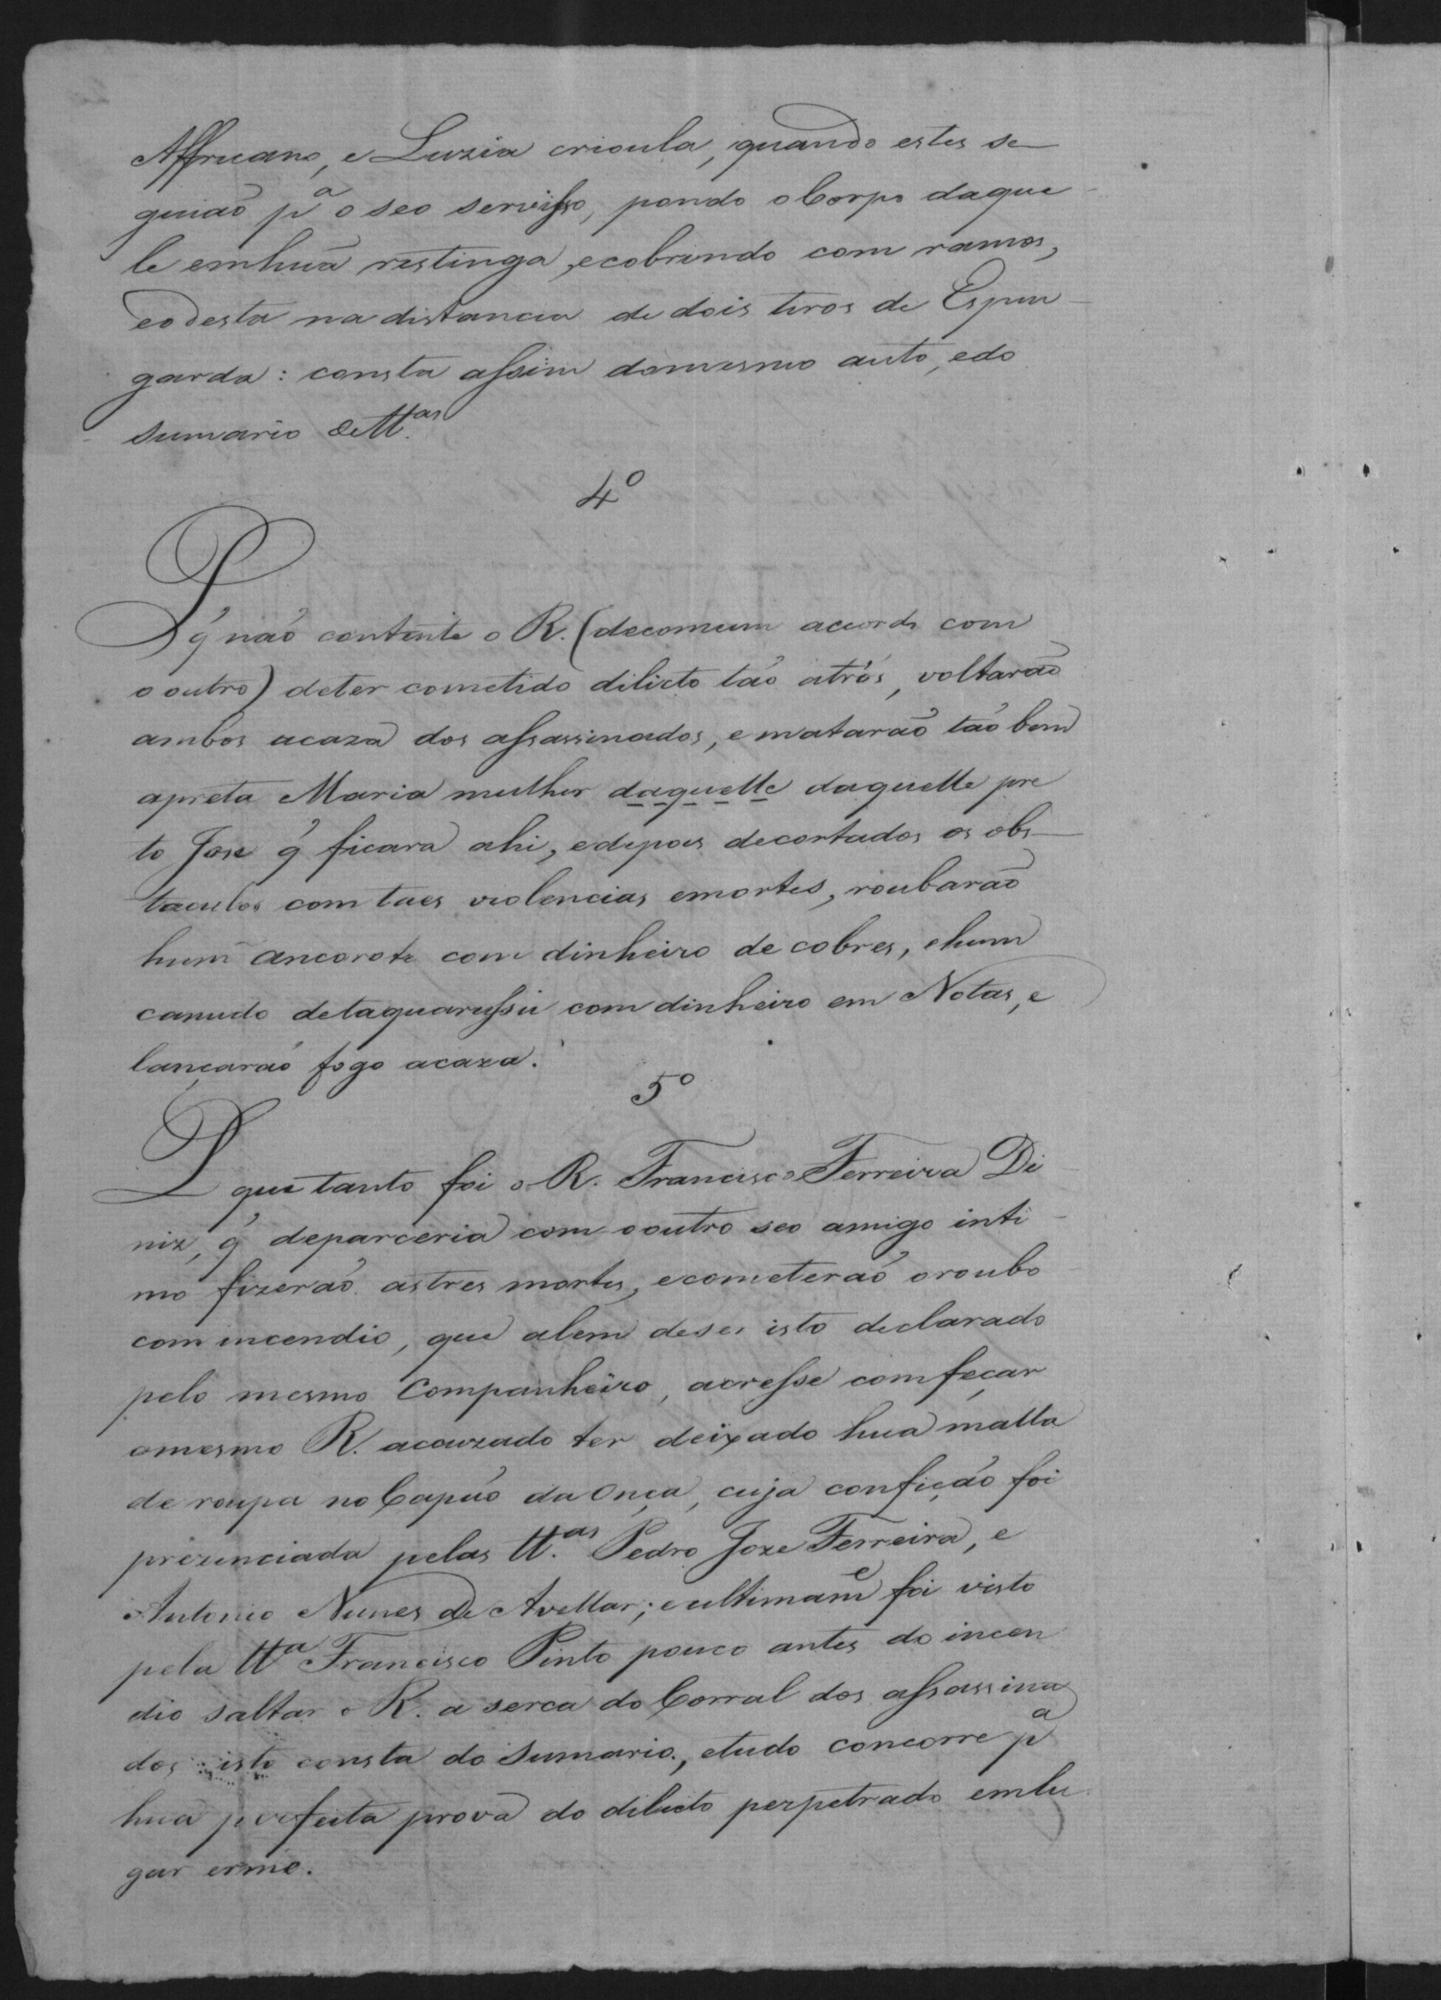 Affricano, e Luzia crioula, quando estes se
guiaõ pª o seo servisso, pondo o Corpo daque
le emhuã restinga, ecobrindo com ramos,
eodesta na distancia de dois tiros de Espin
garda: consta assim domesmo auto, edo
sumario de ttas
4º
P q̃ naõ contente o R. (decomum accordo com
o outro) deter cometido dilicto taõ atrós, voltaraõ
ambos acaza dos assassinados, e mataraõ taõ bem
apreta Maria mulher daquelle daquelle pre
to Joze q̃ ficara ahi, edepois decortados os obs
taculos com taes violencias emortes, roubaraõ
hum ancorote com dinheiro de cobres, ehum
canudo detaquarussú com dinheiro em Notas, e
lançaraõ fogo acaza.
5º
P que tanto foi o R. Francisco Ferreira Di
niz, q̃ deparceria com o outro seo amigo inti
mo fizeraõ astres mortes, ecometeraõ oroubo
com incendio, que alem deser isto declarado
pelo mesmo Companheiro, acresse comfeçar
omesmo R. acouzado ter deixado hua malla
de roupa no Capaõ da Onça, cuja confição foi
prezenciada pelas ttas Pedro Joze Ferreira, e
Antonio Nunes de Avellar; eultimame foi visto
pela tta Francisco Pinto pouco antes do incen
dio saltar o R. a serca do Corral dos assassina
dos isto consta do sumario, etudo concorre pª
hua perfeita prova do dilicto perpetrado emlu
gar ermo.